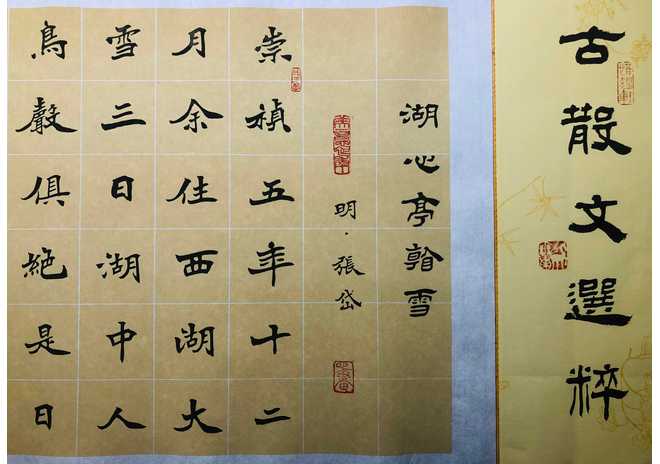 古散文選粹
湖心亭看雪
明·張岱
崇禎五年十二
月余住西湖大
雪三日湖中人
鳥聲俱絕是日